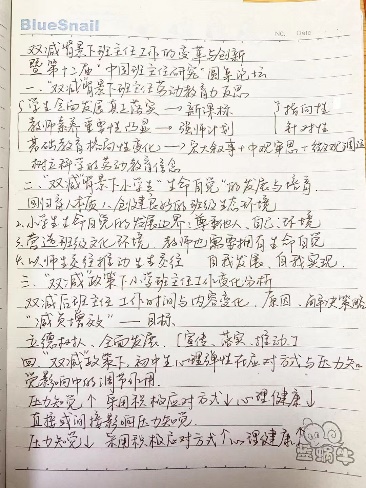 BlueSnail
双减背景下班主任工作的变革与创新
暨第十二届"中国班主任研究"圆桌论坛
一、"双减"背景下班主任劳动教育力反思
学生全面发展真正落实 → 新课标 指向性
教师素养重要性凸显 → 强师计划 针对性
基础教育格局性变化 → 宏大叙事+中观审思+微观调适
树立科学的劳动教育信念
二、"双减"背景下小学生"生命自觉"的发展与培育
回归育人本质 1、创建良好的班级生态环境
2、小学生生命自觉的发展边界:尊重他人、自己、环境
3、营造班级文化环境 教师也需要拥有生命自觉
4、以师生交往推动生生交往 自我发展、自我实现
三、"双减"政策下小学班主任工作变化分析
双减后班主任工作时间与内容变化、原因、解决策略
"减负增效" 目标
立德树人、全面发展、[宣传、落实、推动]
四、"双减"政策下,初中生心理弹性在应对方式与压力知
觉影响中的调节作用
压力知觉↑ 采用积极应对方式↓心理健康↓
直接或间接影响压力知觉
压力知觉↓ 采用积极应对方式↑心理健康↑
蓝蜗牛